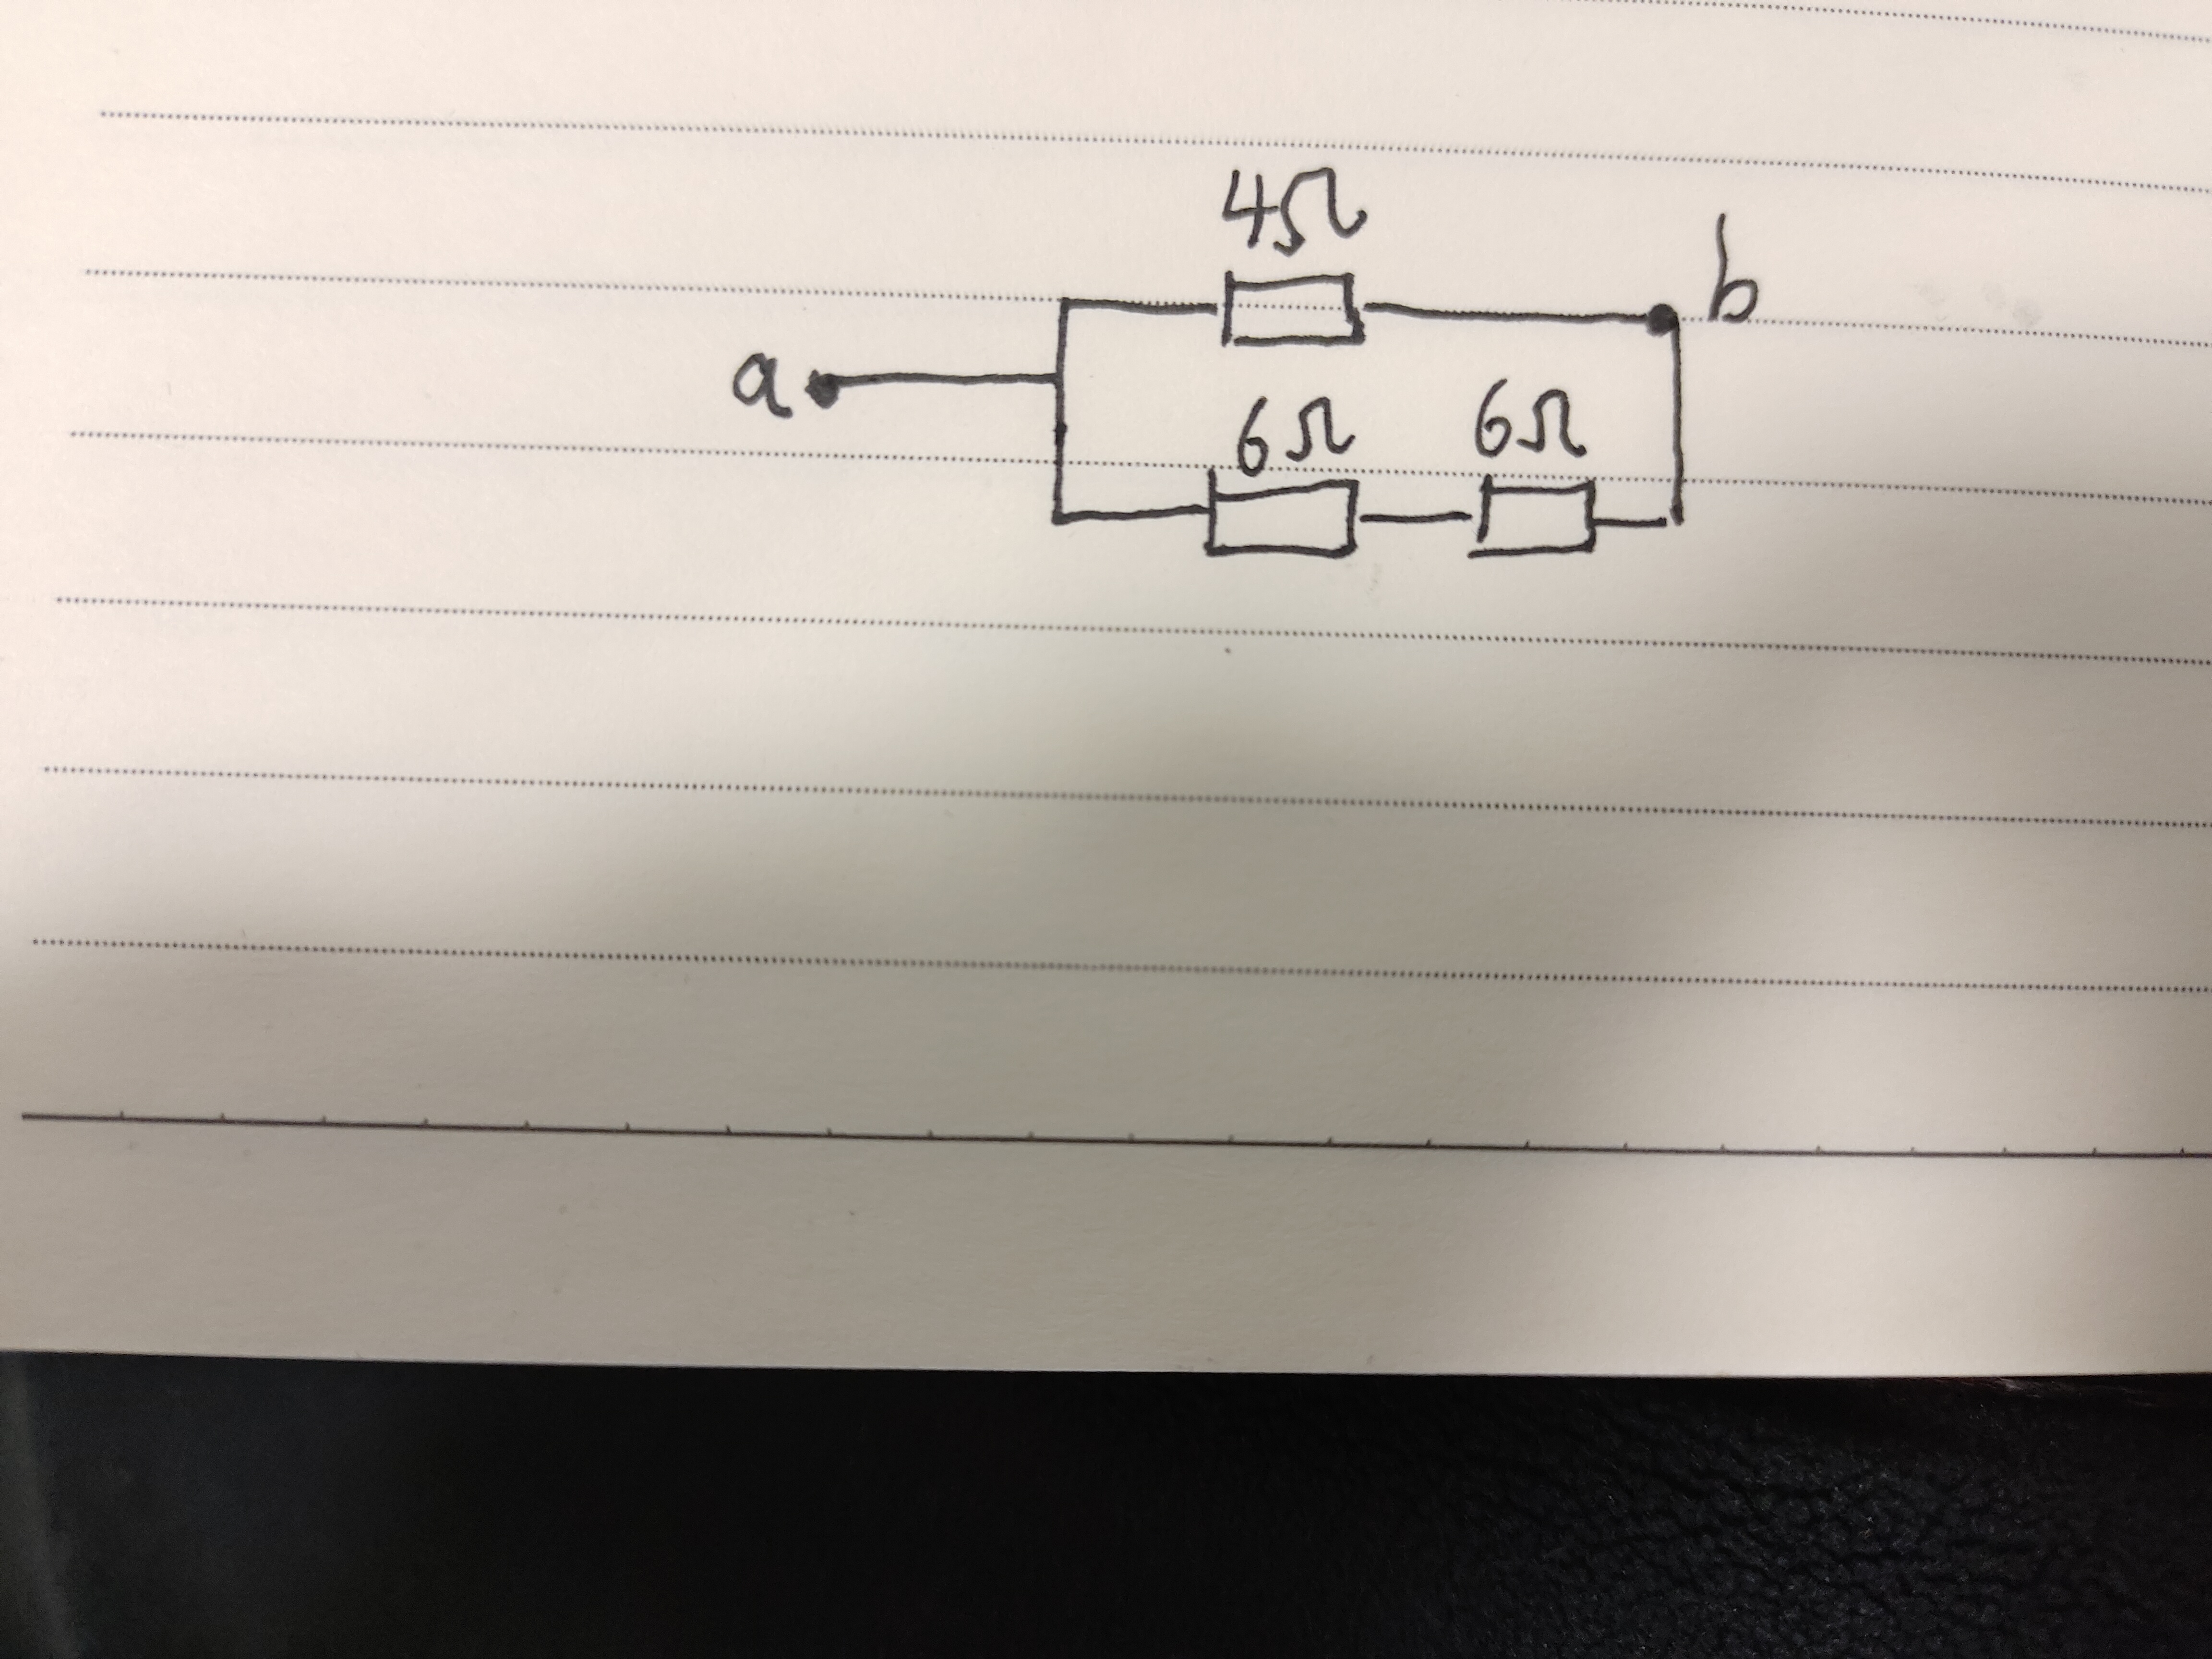 4Ω
b
a
6Ω 6Ω